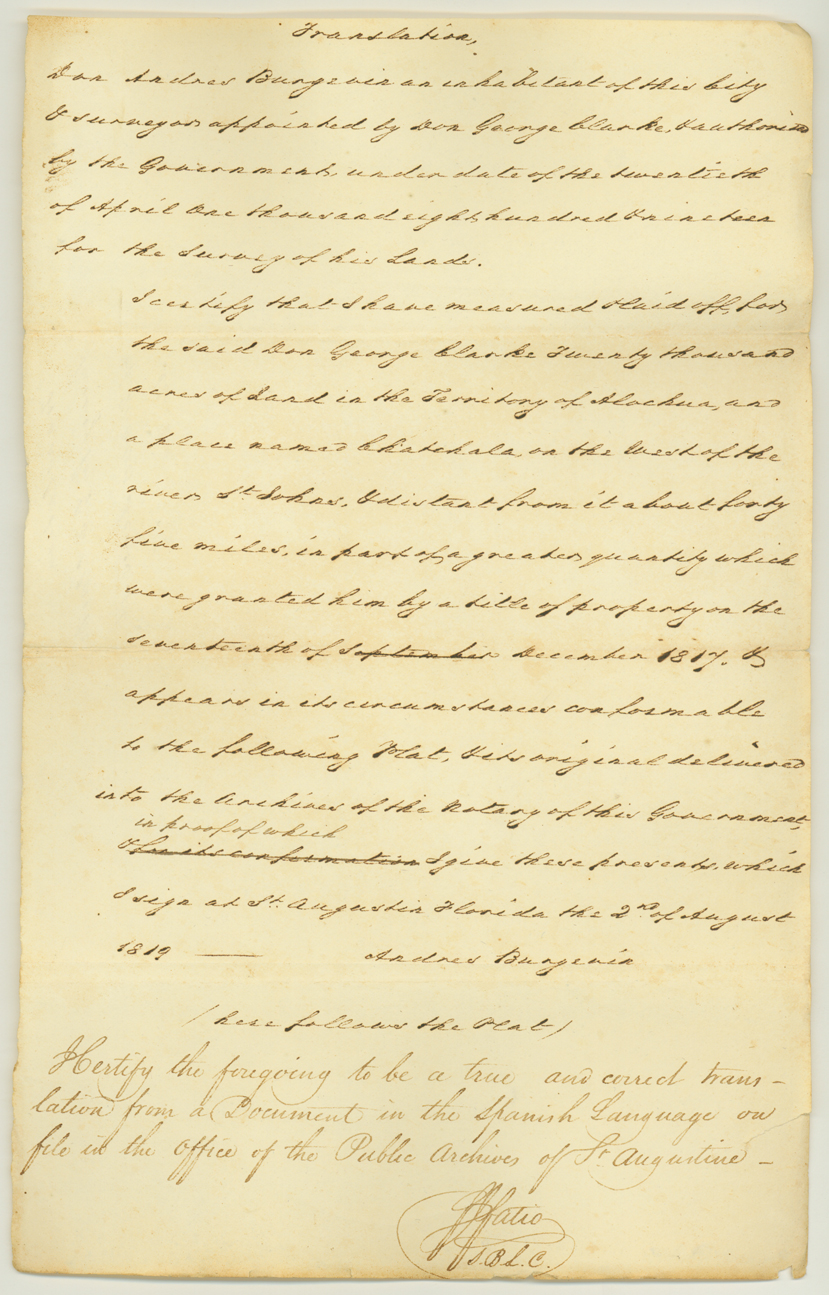 Translation,
Don Andres Burgevin an inhabitant of this City
& surveyor appointed by Don George Clarke, & authorised
by the Government, under date of the twentieth
of April One thousand eight hundred & nineteen
for the Survey of his Lands.
I certify that I have measured & laid off, for
the said Don George Clarke Twenty thousand
acres of Land in the Territory of Alochua, and
a place named Chatchala, on the West of the
river St. Johns, & distant from it about forty
five miles, in part of a greater quantity which
were granted him by a title of property on the
seventeenth of September December 1817. &
appears in its circumstances conformable
to the following Plat, & its original delivered
into the Archives of the Notary of this Government,
in proof of which
& for its conformation I give these presents, which
I sign at St. Augustin Florida the 2nd of August
1819 —— Andres Burgevin
(here follows the Plat)
I Certify the foregoing to be a true and correct trans-
lation from a Document in the Spanish Language on
file in the office of the Public Archives of St Augustine -
Fatio
S.B.L.C.